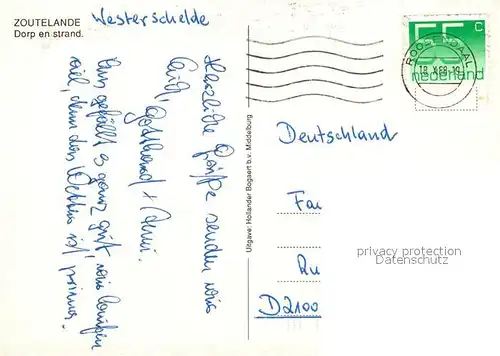 ZOUTELANDE
Dorp en strand.
Westerschelde
Herzliche Grüße senden wir
Euch,
uns gefällt es ganz gut, wir laufen
viel, denn das Wetter ist prima.
Uitgave: Hollander Bogaert b.v. Middelburg
55 c
nederland
ROOSENDAAL
Deutschland
Fa
Ru
D2100
privacy protection
Datenschutz